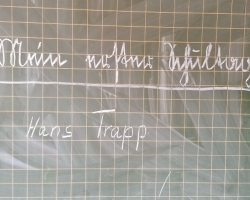 Mein erster Schultag
Hans Trapp